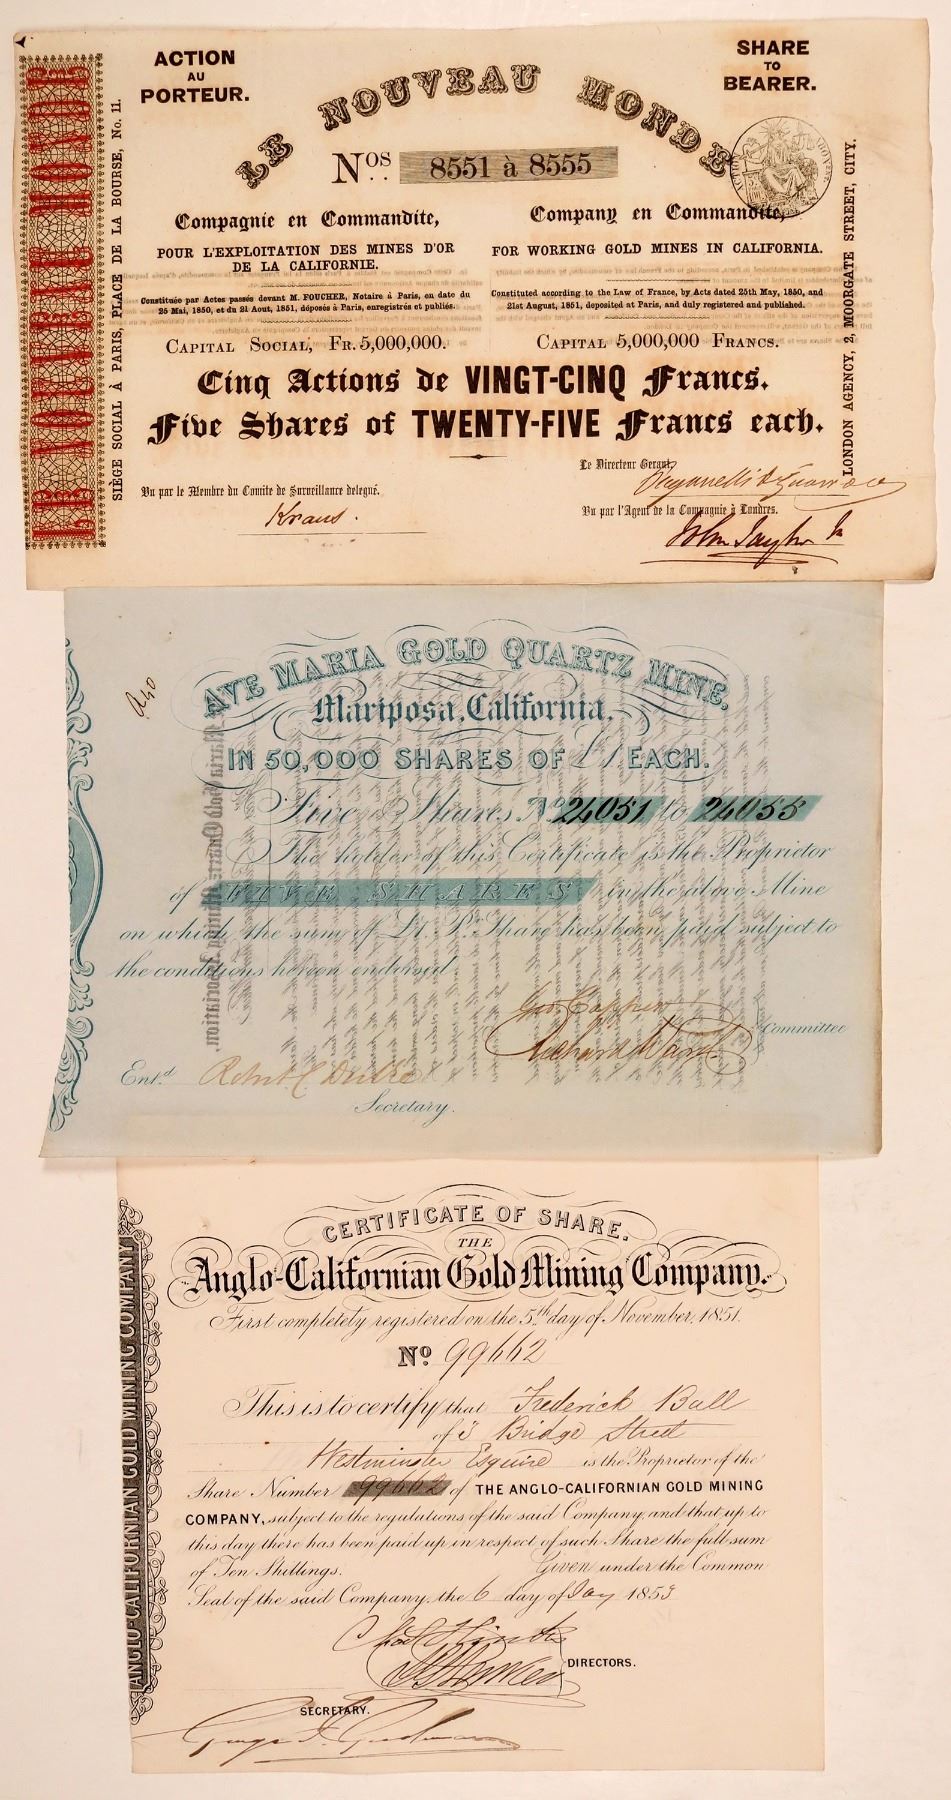 ACTION
AU
PORTEUR.
SHARE
TO
BEARER.
LE NOUVEAU MONDE
Nos. 8551 à 8555
LE NOUVEAU MONDE
SIÈGE SOCIAL À PARIS, PLACE DE LA BOURSE, No. 11.
Compagnie en Commandite,
POUR L'EXPLOITATION DES MINES D'OR
DE LA CALIFORNIE.
Constituée par Actes passés devant M. FOUCHER, Notaire à Paris, en date du
25 Mai, 1850, et du 21 Aout, 1851, déposés à Paris, enregistrés et publiés.
CAPITAL SOCIAL, FR. 5,000,000.
Company en Commandite,
FOR WORKING GOLD MINES IN CALIFORNIA.
Constituted according to the Law of France, by Acts dated 25th May, 1850, and
21st August, 1851, deposited at Paris, and duly registered and published.
CAPITAL 5,000,000 FRANCS.
LONDON AGENCY, 2, MORGATE STREET, CITY.
Cinq Actions de VINGT-CINQ Francs.
Five Shares of TWENTY-FIVE Francs each.
Le Directeur Gerant,
Vu par le Membre du Comite de Surveillance delegué.
Kraus.
Vu par l'Agent de la Compagnie à Londres.
John Taylor Jr
AVE MARIA GOLD QUARTZ MINE.
Mariposa, California,
IN 50,000 SHARES OF £1 EACH.
Five Shares No. 24051 to 24055
The holder of this Certificate is the Proprietor
of FIVE SHARES in the above Mine
on which the sum of £1. Pr. Share has been paid subject to
the conditions hereon endorsed
Richard Ward
Committee
Entd. Robert C Drake
Secretary.
CERTIFICATE OF SHARE.
THE
Anglo-Californian Gold Mining Company.
First completely registered on the 5th day of November, 1851.
No 99662
ANGLO-CALIFORNIAN GOLD MINING COMPANY
This is to certify that Frederick Ball
of 3 Bridge Street
Westminster Esquire is the Proprietor of the
Share Number 99662 of THE ANGLO-CALIFORNIAN GOLD MINING
COMPANY, subject to the regulations of the said Company, and that up to
this day there has been paid up in respect of such Share the full sum
of Ten Shillings. Given under the Common
Seal of the said Company, the 6 day of Jay 1853
DIRECTORS.
SECRETARY.